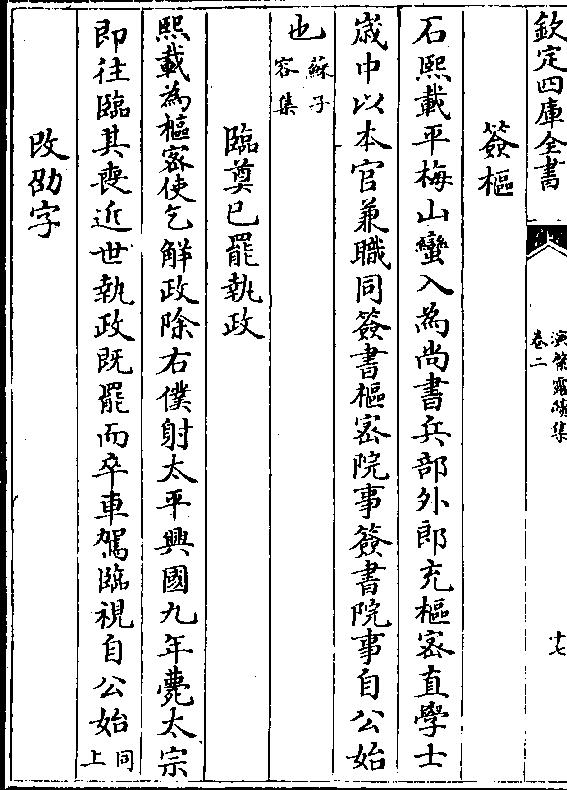 欽定四庫全書
演繁露續集
卷二
十七
簽樞
石熙載平梅山蠻入為尚書兵部外郎充樞密直學士
歲中以本官兼職同簽書樞密院事簽書院事自公始
也蘇子容集
臨奠已罷執政
熙載為樞密使乞解政除右僕射太平興國九年薨太宗
即往臨其喪近世執政既罷而卒車駕臨視自公始同上
改劭字